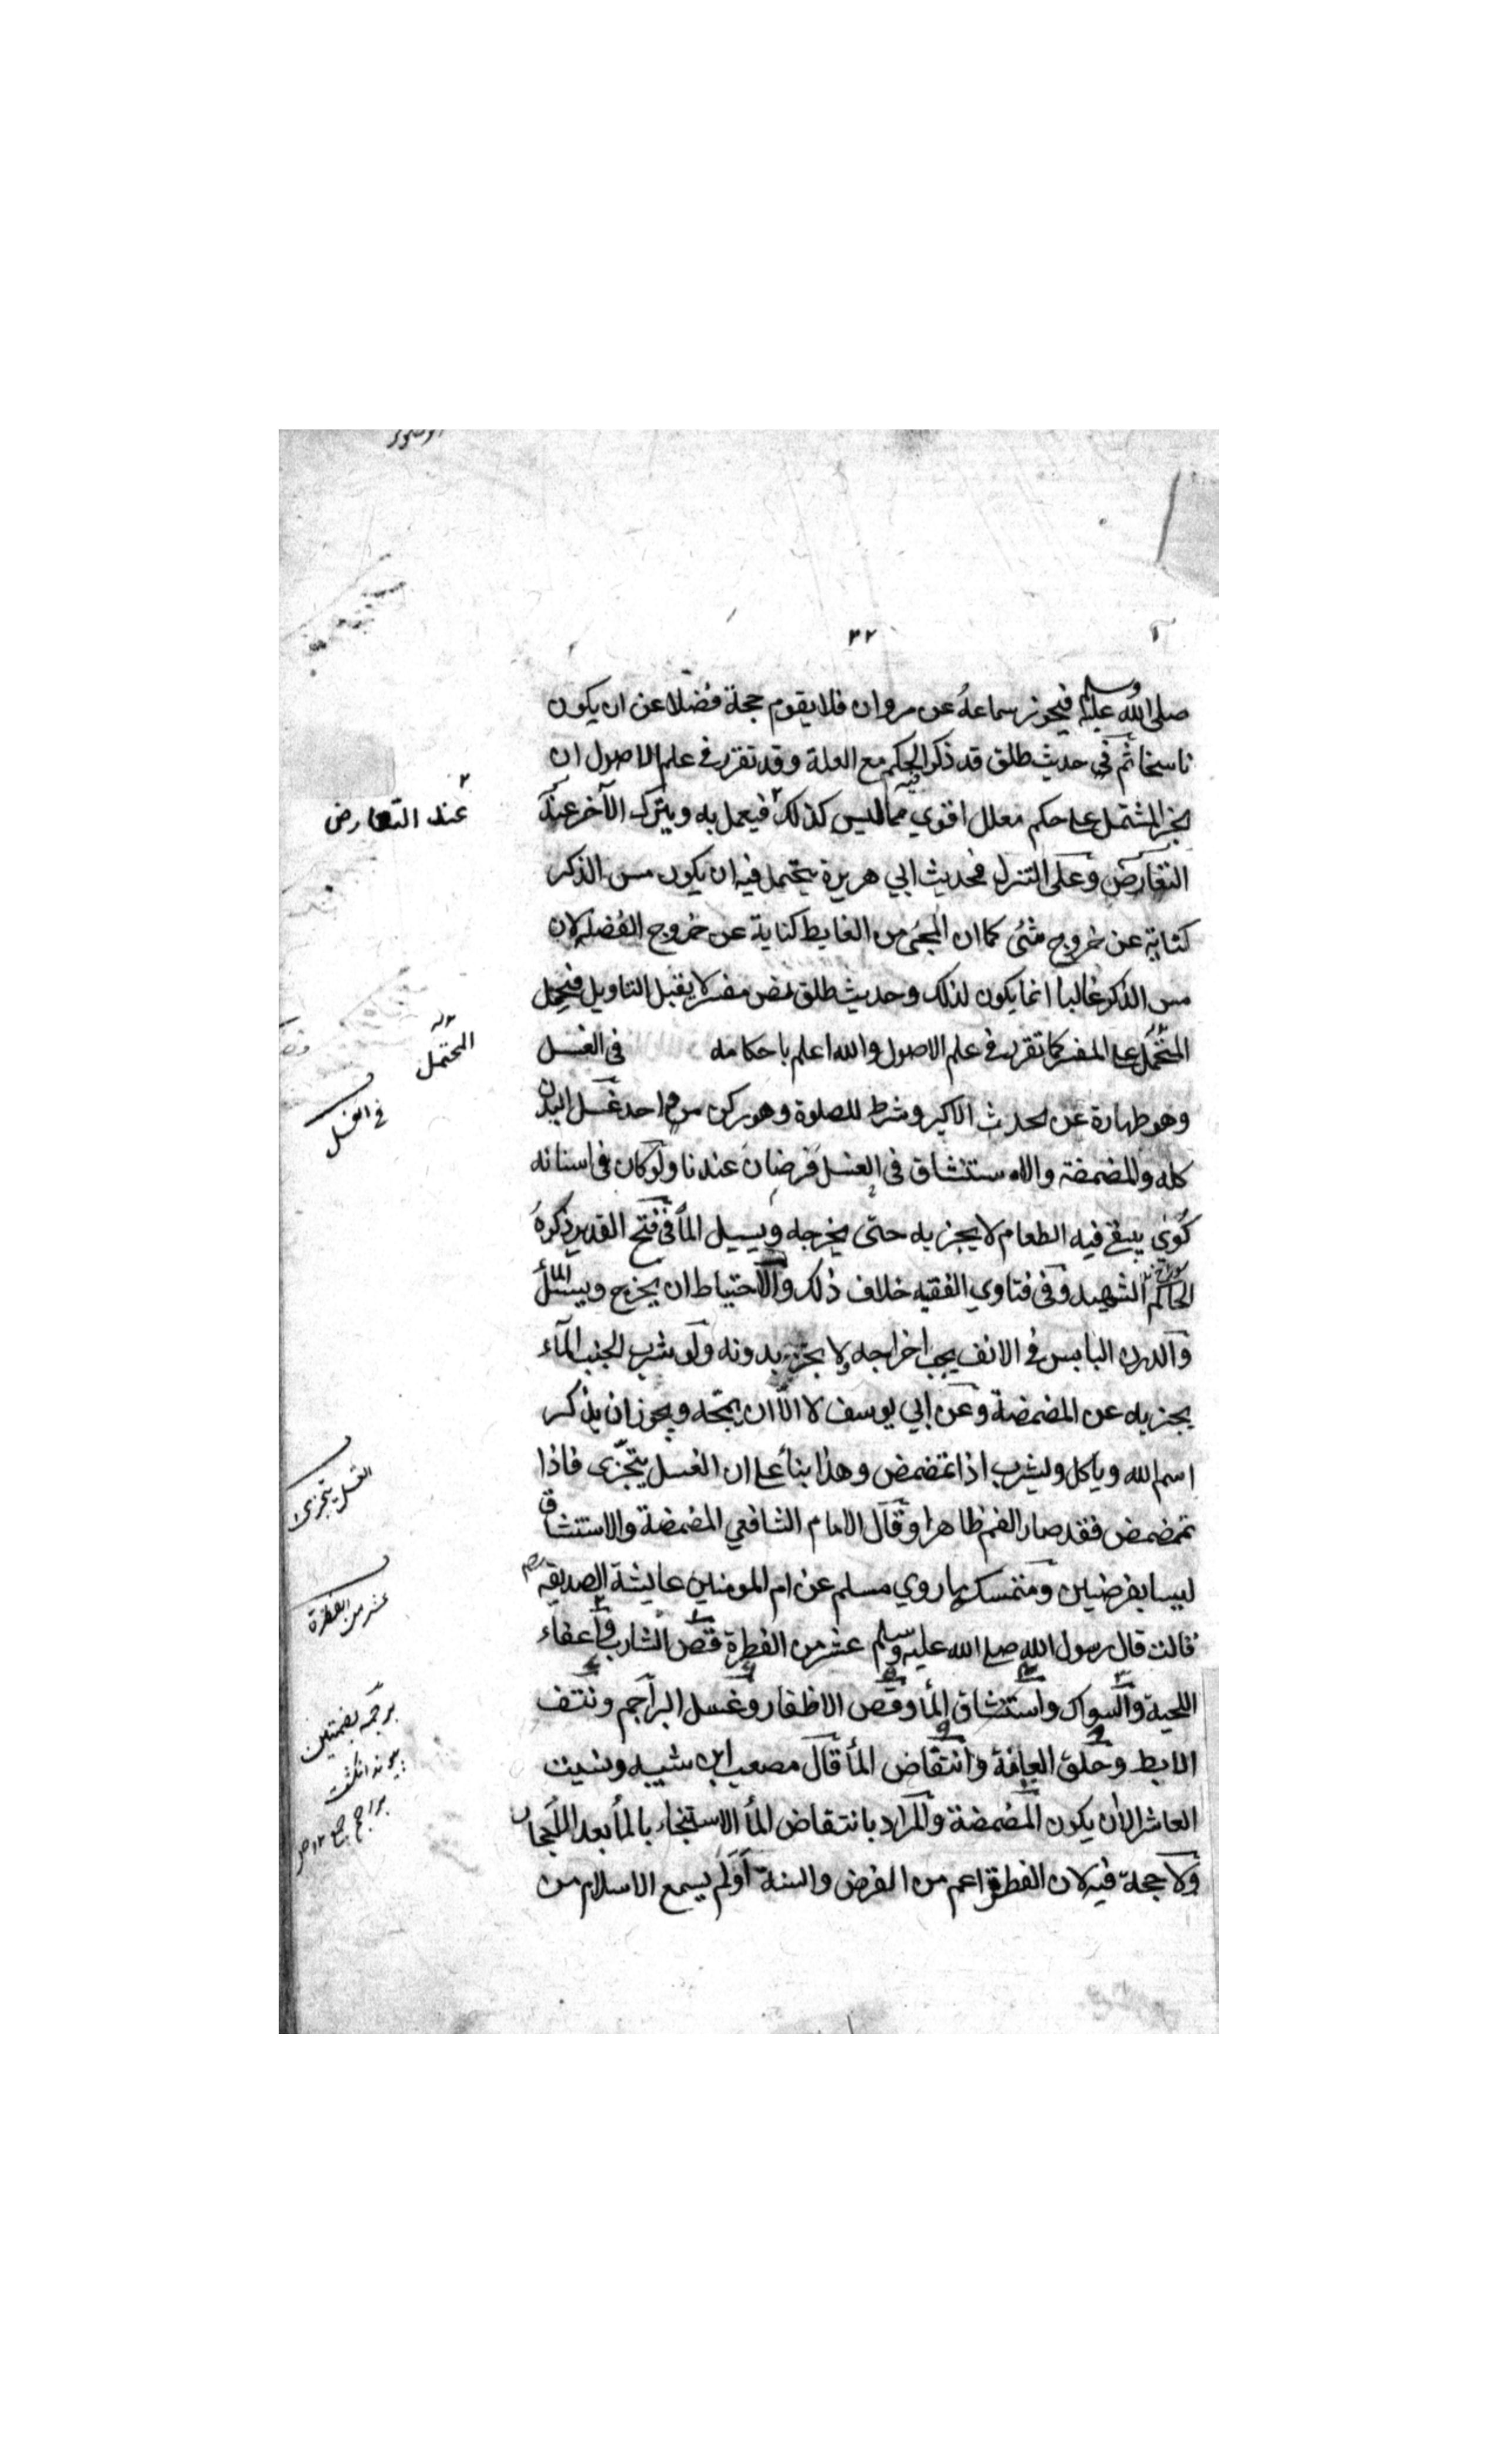 ٣٢
صلى الله عليه وسلم فيجوز سماعه عن مروان فلا يقوم حجة فضلا عن ان يكون
ناسخا ثم في حديث طلق قد ذكر الحكم مع العلة وقد تقرر في علم الاصول ان
الخبر المشتمل على حكم معلل اقوي مما ليس فيه كذلك فيعمل به ويترك الآخر عند
التعارض وعلى التنزل فحديث ابي هريرة يحتمل فيه ان يكون مس الذكر
كناية عن خروج شئ كما ان المجئ من الغايط كناية عن خروج الفضلة لان
مس الذكر غالبا انما يكون لذلك وحديث طلق نص مفسر لا يقبل التاويل فيحمل
المحتمل على المفسر كما تقرر في علم الاصول والله اعلم باحكامه في الغسل
وهو طهارة عن الحدث الاكبر وشرط للصلوة وهو ركن واحد غسل البدن
كله والمضمضة والاستنشاق في الغسل فرضان عندنا ولو كان في اسنانه
كوي يبقى فيه الطعام لا يجزيه حتى يخرجه ويسيل الماء في فتح القدير ذكره
الحاكم الشهيد وفي فتاوي الفقيه خلاف ذلك والاحتياط ان يخرج ويسيل الماء
والدرن اليابس في الانف يجب اخراجه ولا يجزيه بدونه ولو شرب الجنب الماء
يجزيه عن المضمضة وعن ابي يوسف لا الا ان يمجه ويجوز ان يذكر
اسم الله وياكل ويشرب اذا تمضمض وهذا بناء على ان الغسل يتجزى فاذا
تمضمض فقد صار الفم طاهرا وقال الامام الشافعي المضمضة والاستنشاق
ليسا بفرضين ومتمسك بما روي مسلم عن ام المومنين عايشة الصديقة رضي
قالت قال رسول الله صلى الله عليه وسلم عشر من الفطرة قص الشارب واعفاء
اللحية والسواك واستنشاق الماء وقص الاظفار وغسل البراجم ونتف
الابط وحلق العانة وانتقاض الماء قال مصعب ابن شيبه ونسيت
العاشر الا ان يكون المضمضة والمراد بانتقاض الماء الاستنجاء بالماء بعد
ولا حجة فيه لان الفطرة اعم من الفرض والسنة اولم يسمع الاسلام من
عند التعارض
المحتمل
في الغسل
الغسل يتجزى
عشر من الفطرة
برجمه بضمتين
پیوند انگشت
براجم جمع ١٢ صر